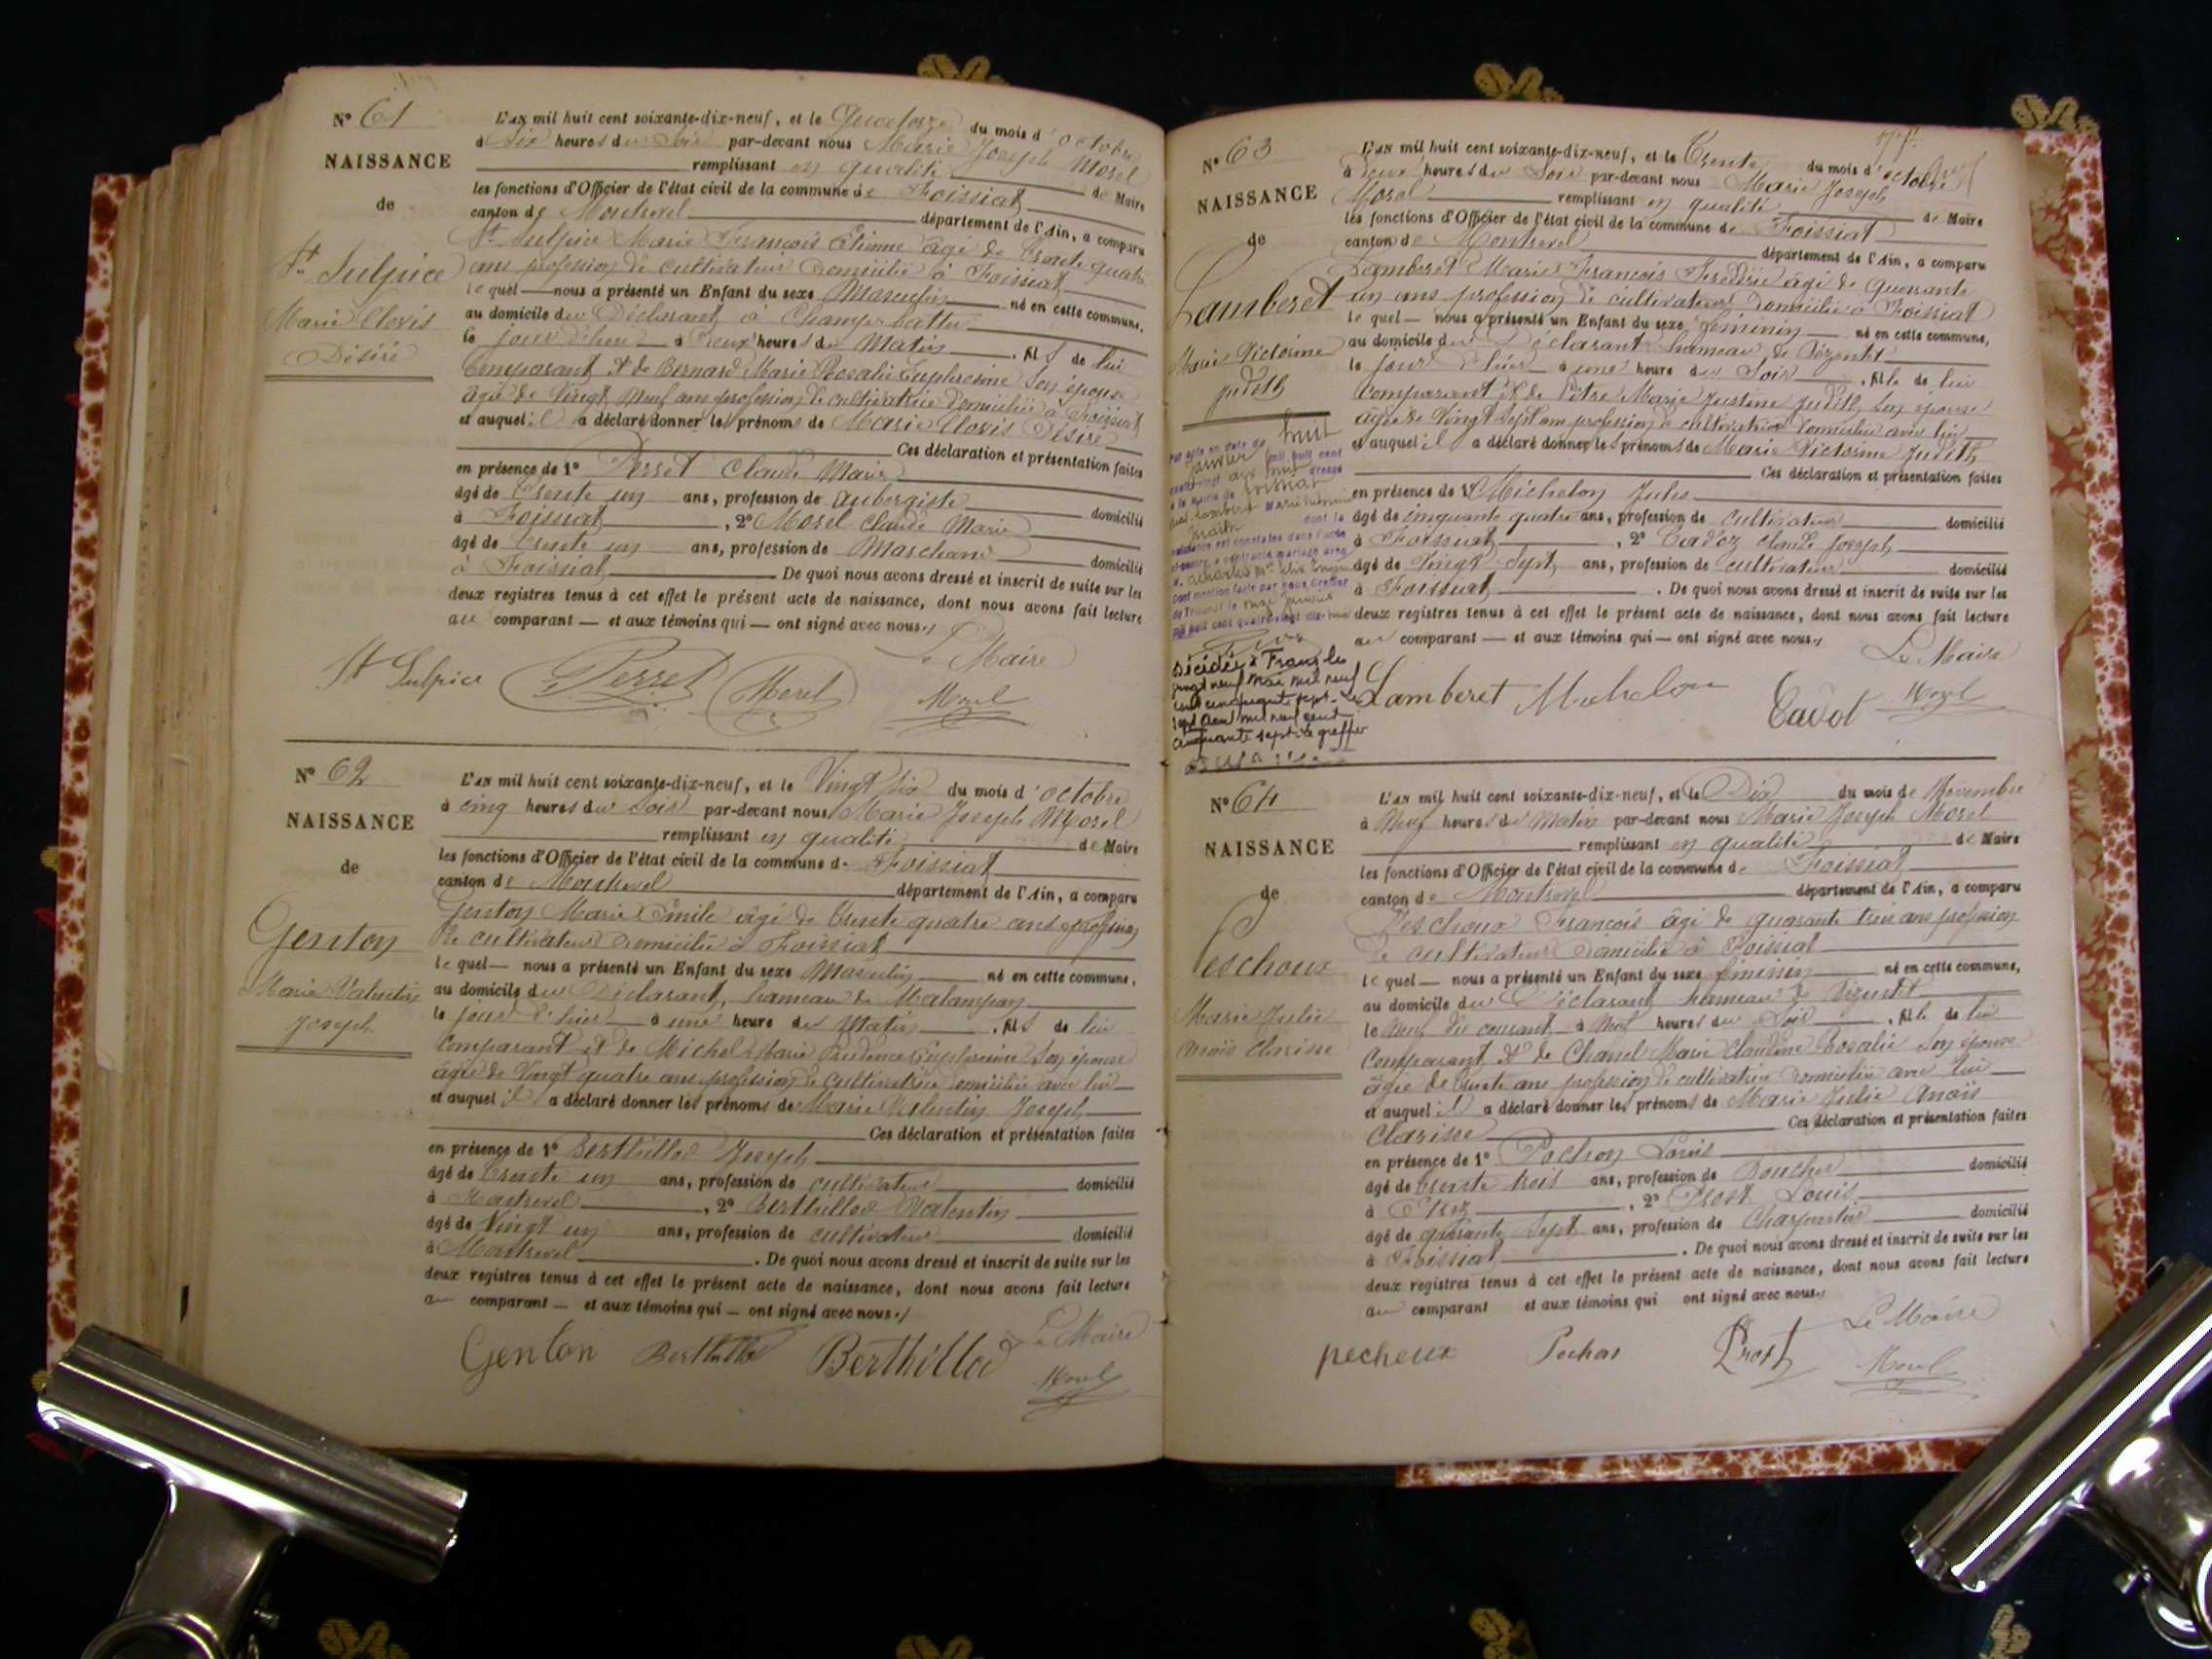 N° 61
NAISSANCE
de
St Sulpice
Marie Clovis
Désiré
L'AN mil huit cent soixante-dix-neuf, et le Quatorze du mois d'octobre
à Six heures du Soir par-devant nous Marie Joseph Morel
remplissant en qualité de Maire
les fonctions d'Officier de l'état civil de la commune de Foissiat
canton de Montrevel département de l'Ain, a comparu
St Sulpice Marie François Etienne âgé de Trente quatre
ans profession de cultivateur domicilié à Foissiat
lequel nous a présenté un Enfant du sexe Masculin né en cette commune,
au domicile du Déclarant à Champ battu
le jour d'hui à deux heures du Matin, fils de lui
Comparant et de Bernard Marie Rosalie Euphrosine Son épouse
âgée de Vingt neuf ans profession de cultivatrice domiciliée à Foissiat
et auquel il a déclaré donner les prénoms de Marie Clovis Désiré
Ces déclaration et présentation faites
en présence de 1° Perret Claude Marie
âgé de Trente un ans, profession de aubergiste domicilié
à Foissiat, 2° Morel Claude Marie
âgé de Trente un ans, profession de Marchand domicilié
à Foissiat De quoi nous avons dressé et inscrit de suite sur les
deux registres tenus à cet effet le présent acte de naissance, dont nous avons fait lecture
au comparant — et aux témoins qui — ont signé avec nous./
Le Maire
St Sulpice Perret Morel Morel
N° 62
NAISSANCE
de
Genton
Marie Valentin
Joseph
L'AN mil huit cent soixante-dix-neuf, et le Vingt six du mois d'octobre
à cinq heures du Soir par-devant nous Marie Joseph Morel
remplissant en qualité de Maire
les fonctions d'Officier de l'état civil de la commune de Foissiat
canton de Montrevel département de l'Ain, a comparu
Genton Marie Emile âgé de Trente quatre ans profession
de cultivateur domicilié à Foissiat
lequel — nous a présenté un Enfant du sexe Masculin né en cette commune,
au domicile du Déclarant, hameau de
le jour d'hier à une heure du Matin, fils de lui
Comparant et de Michel Marie Prudence Euphrosine Son épouse
âgée de Vingt quatre ans profession de cultivatrice domiciliée avec lui
et auquel il a déclaré donner les prénoms de Marie Valentin Joseph
Ces déclaration et présentation faites
en présence de 1° Berthillod Joseph
âgé de Trente un ans, profession de cultivateur domicilié
à Montrevel, 2° Berthillod Valentin
âgé de Vingt un ans, profession de cultivateur domicilié
à Montrevel. De quoi nous avons dressé et inscrit de suite sur les
deux registres tenus à cet effet le présent acte de naissance, dont nous avons fait lecture
au comparant — et aux témoins qui — ont signé avec nous./
Le Maire
Genton Berthillod Berthillod Morel
N° 63
NAISSANCE
de
Lamberet
Marie Victorine
Judith
L'AN mil huit cent soixante-dix-neuf, et le Trente du mois d'octobre
à deux heures du Soir par-devant nous Marie Joseph
Morel remplissant en qualité de Maire
les fonctions d'Officier de l'état civil de la commune de Foissiat
canton de Montrevel département de l'Ain, a comparu
Lamberet Marie François Frédéric âgé de quarante
un ans profession de cultivateur domicilié à Foissiat
lequel — nous a présenté un Enfant du sexe féminin né en cette commune,
au domicile du Déclarant hameau de
le jour d'hier à une heure du Soir, fille de lui
Comparant et de Pitre Marie Justine Judith Son épouse
âgée de Vingt Sept ans profession de cultivatrice domiciliée avec lui
et auquel il a déclaré donner les prénoms de Marie Victorine Judith
Ces déclaration et présentation faites
en présence de 1° Michelon Jules
âgé de cinquante quatre ans, profession de cultivateur domicilié
à Foissiat, 2° Cadoz Claude Joseph
âgé de Vingt-Sept ans, profession de cultivateur domicilié
à Foissiat. De quoi nous avons dressé et inscrit de suite sur les
deux registres tenus à cet effet le présent acte de naissance, dont nous avons fait lecture
au comparant — et aux témoins qui — ont signé avec nous./
Le Maire
Lamberet Michelon Morel
Par acte en date du huit
janvier mil huit cent
quatre vingt dix huit dressé
à la mairie de Foissiat
Marie Victorine
Judith dont la
naissance est constatée dans l'acte
ci-contre, a contracté mariage avec
Dont mention faite par nous Greffier
du Tribunal le onze janvier
mil huit cent quatre-vingt dix-huit
Décédée à Frans le
vingt neuf mai mil neuf
cent cinquante sept. Le
sept août mil neuf cent
cinquante sept. Le greffier
N° 64
NAISSANCE
de
Peschoux
Marie Julie
Anaïs Clarisse
L'AN mil huit cent soixante-dix-neuf, et le Dix du mois de Novembre
à Neuf heures du Matin par-devant nous Marie Joseph Morel
remplissant en qualité de Maire
les fonctions d'Officier de l'état civil de la commune de Foissiat
canton de Montrevel département de l'Ain, a comparu
Peschoux François âgé de quarante trois ans profession
de cultivateur domicilié à Foissiat
lequel — nous a présenté un Enfant du sexe féminin né en cette commune,
au domicile du Déclarant hameau de
le Neuf du courant à Neuf heures du Soir, fille de lui
Comparant et de Chanel Marie Claudine Rosalie Son épouse
âgée de Trente ans profession de cultivatrice domiciliée avec lui
et auquel il a déclaré donner les prénoms de Marie Julie Anaïs
Clarisse Ces déclaration et présentation faites
en présence de 1° Pochon Louis
âgé de Trente trois ans, profession de Boucher domicilié
à Etrez, 2° Prost Louis
âgé de quarante Sept ans, profession de Charpentier domicilié
à Foissiat. De quoi nous avons dressé et inscrit de suite sur les
deux registres tenus à cet effet le présent acte de naissance, dont nous avons fait lecture
au comparant et aux témoins qui ont signé avec nous./
Le Maire
pecheux Pochon Prost Morel